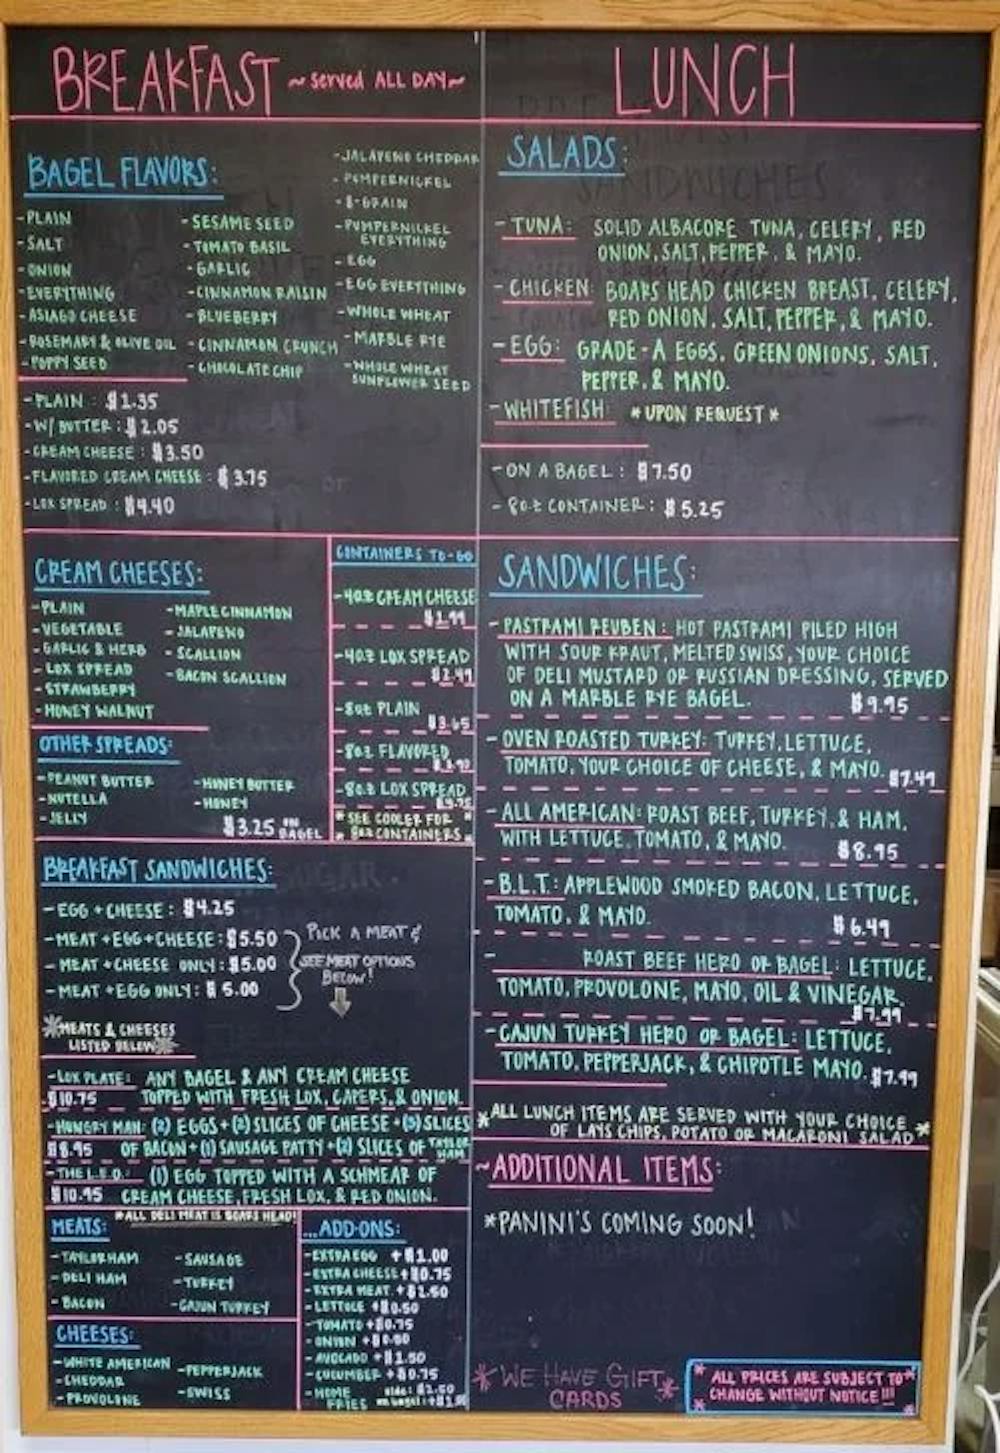 BREAKFAST ~served ALL DAY~
BAGEL FLAVORS:
-PLAIN
-SALT
-ONION
-EVERYTHING
-ASIAGO CHEESE
-ROSEMARY & OLIVE OIL
-POPPY SEED
-SESAME SEED
-TOMATO BASIL
-GARLIC
-CINNAMON RAISIN
-BLUEBERRY
-CINNAMON CRUNCH
-CHOCOLATE CHIP
-JALAPENO CHEDDAR
-PUMPERNICKEL
-8-GRAIN
-PUMPERNICKEL
EVERYTHING
-EGG
-EGG EVERYTHING
-WHOLE WHEAT
-MARBLE RYE
-WHOLE WHEAT
SUNFLOWER SEED
-PLAIN : $1.35
-W/ BUTTER: $2.05
-CREAM CHEESE : $3.50
-FLAVORED CREAM CHEESE : $3.75
-LOX SPREAD : $4.40
CREAM CHEESES:
-PLAIN
-VEGETABLE
-GARLIC & HERB
-LOX SPREAD
-STRAWBERRY
-HONEY WALNUT
-MAPLE CINNAMON
-JALAPENO
-SCALLION
-BACON SCALLION
OTHER SPREADS:
-PEANUT BUTTER
-NUTELLA
-JELLY
-HONEY BUTTER
-HONEY
$3.25 ON BAGEL
CONTAINERS TO-GO
-4OZ CREAM CHEESE
$1.99
-4OZ LOX SPREAD
$2.49
-8OZ PLAIN
$3.65
-8OZ FLAVORED
-8OZ LOX SPREAD
*SEE COOLER FOR *
* 8OZ CONTAINERS *
BREAKFAST SANDWICHES:
-EGG + CHEESE : $4.25
-MEAT +EGG+CHEESE: $5.50
-MEAT +CHEESE ONLY: $5.00
-MEAT +EGG ONLY: $5.00
PICK A MEAT &
SEE MEAT OPTIONS
BELOW!
*MEATS & CHEESES
LISTED BELOW*
-LOX PLATE: ANY BAGEL & ANY CREAM CHEESE
$10.75 TOPPED WITH FRESH LOX, CAPERS, & ONION.
-HUNGRY MAN: (2) EGGS +(2) SLICES OF CHEESE +(3) SLICES
$8.95 OF BACON +(1) SAUSAGE PATTY +(2) SLICES OF TAYLOR HAM
-THE L.E.O.: (1) EGG TOPPED WITH A SCHMEAR OF
$10.95 CREAM CHEESE, FRESH LOX, & RED ONION.
*ALL DELI MEAT IS BOARS HEAD!
MEATS:
-TAYLOR HAM
-DELI HAM
-BACON
-SAUSAGE
-TURKEY
-CAJUN TURKEY
CHEESES:
-WHITE AMERICAN
-CHEDDAR
-PROVOLONE
-PEPPERJACK
-SWISS
...ADD-ONS:
-EXTRA EGG +$1.00
-EXTRA CHEESE +$0.75
-EXTRA MEAT +$2.50
-LETTUCE +$0.50
-TOMATO +$0.75
-ONION +$0.50
-AVOCADO +$1.50
-CUCUMBER +$0.75
-HOME side: $2.50
FRIES on bagel:
LUNCH
SALADS:
-TUNA: SOLID ALBACORE TUNA, CELERY, RED
ONION, SALT, PEPPER, & MAYO.
-CHICKEN: BOARS HEAD CHICKEN BREAST, CELERY,
RED ONION, SALT, PEPPER, & MAYO.
-EGG: GRADE-A EGGS, GREEN ONIONS, SALT,
PEPPER, & MAYO.
-WHITEFISH *UPON REQUEST*
-ON A BAGEL : $7.50
-8OZ CONTAINER: $5.25
SANDWICHES:
-PASTRAMI REUBEN : HOT PASTRAMI PILED HIGH
WITH SOUR KRAUT, MELTED SWISS, YOUR CHOICE
OF DELI MUSTARD OR RUSSIAN DRESSING, SERVED
ON A MARBLE RYE BAGEL. $9.95
-OVEN ROASTED TURKEY: TURKEY, LETTUCE,
TOMATO, YOUR CHOICE OF CHEESE, & MAYO. $7.49
-ALL AMERICAN: ROAST BEEF, TURKEY, & HAM,
WITH LETTUCE, TOMATO, & MAYO. $8.95
-B.L.T.: APPLEWOOD SMOKED BACON, LETTUCE,
TOMATO, & MAYO. $6.49
- ROAST BEEF HERO OR BAGEL: LETTUCE,
TOMATO, PROVOLONE, MAYO, OIL & VINEGAR.
$7.99
-CAJUN TURKEY HERO OR BAGEL: LETTUCE,
TOMATO, PEPPERJACK, & CHIPOTLE MAYO. $7.99
*ALL LUNCH ITEMS ARE SERVED WITH YOUR CHOICE
OF LAYS CHIPS, POTATO OR MACARONI SALAD*
~ADDITIONAL ITEMS:
*PANINI'S COMING SOON!
*WE HAVE GIFT*
CARDS
*ALL PRICES ARE SUBJECT TO*
*CHANGE WITHOUT NOTICE!!!*